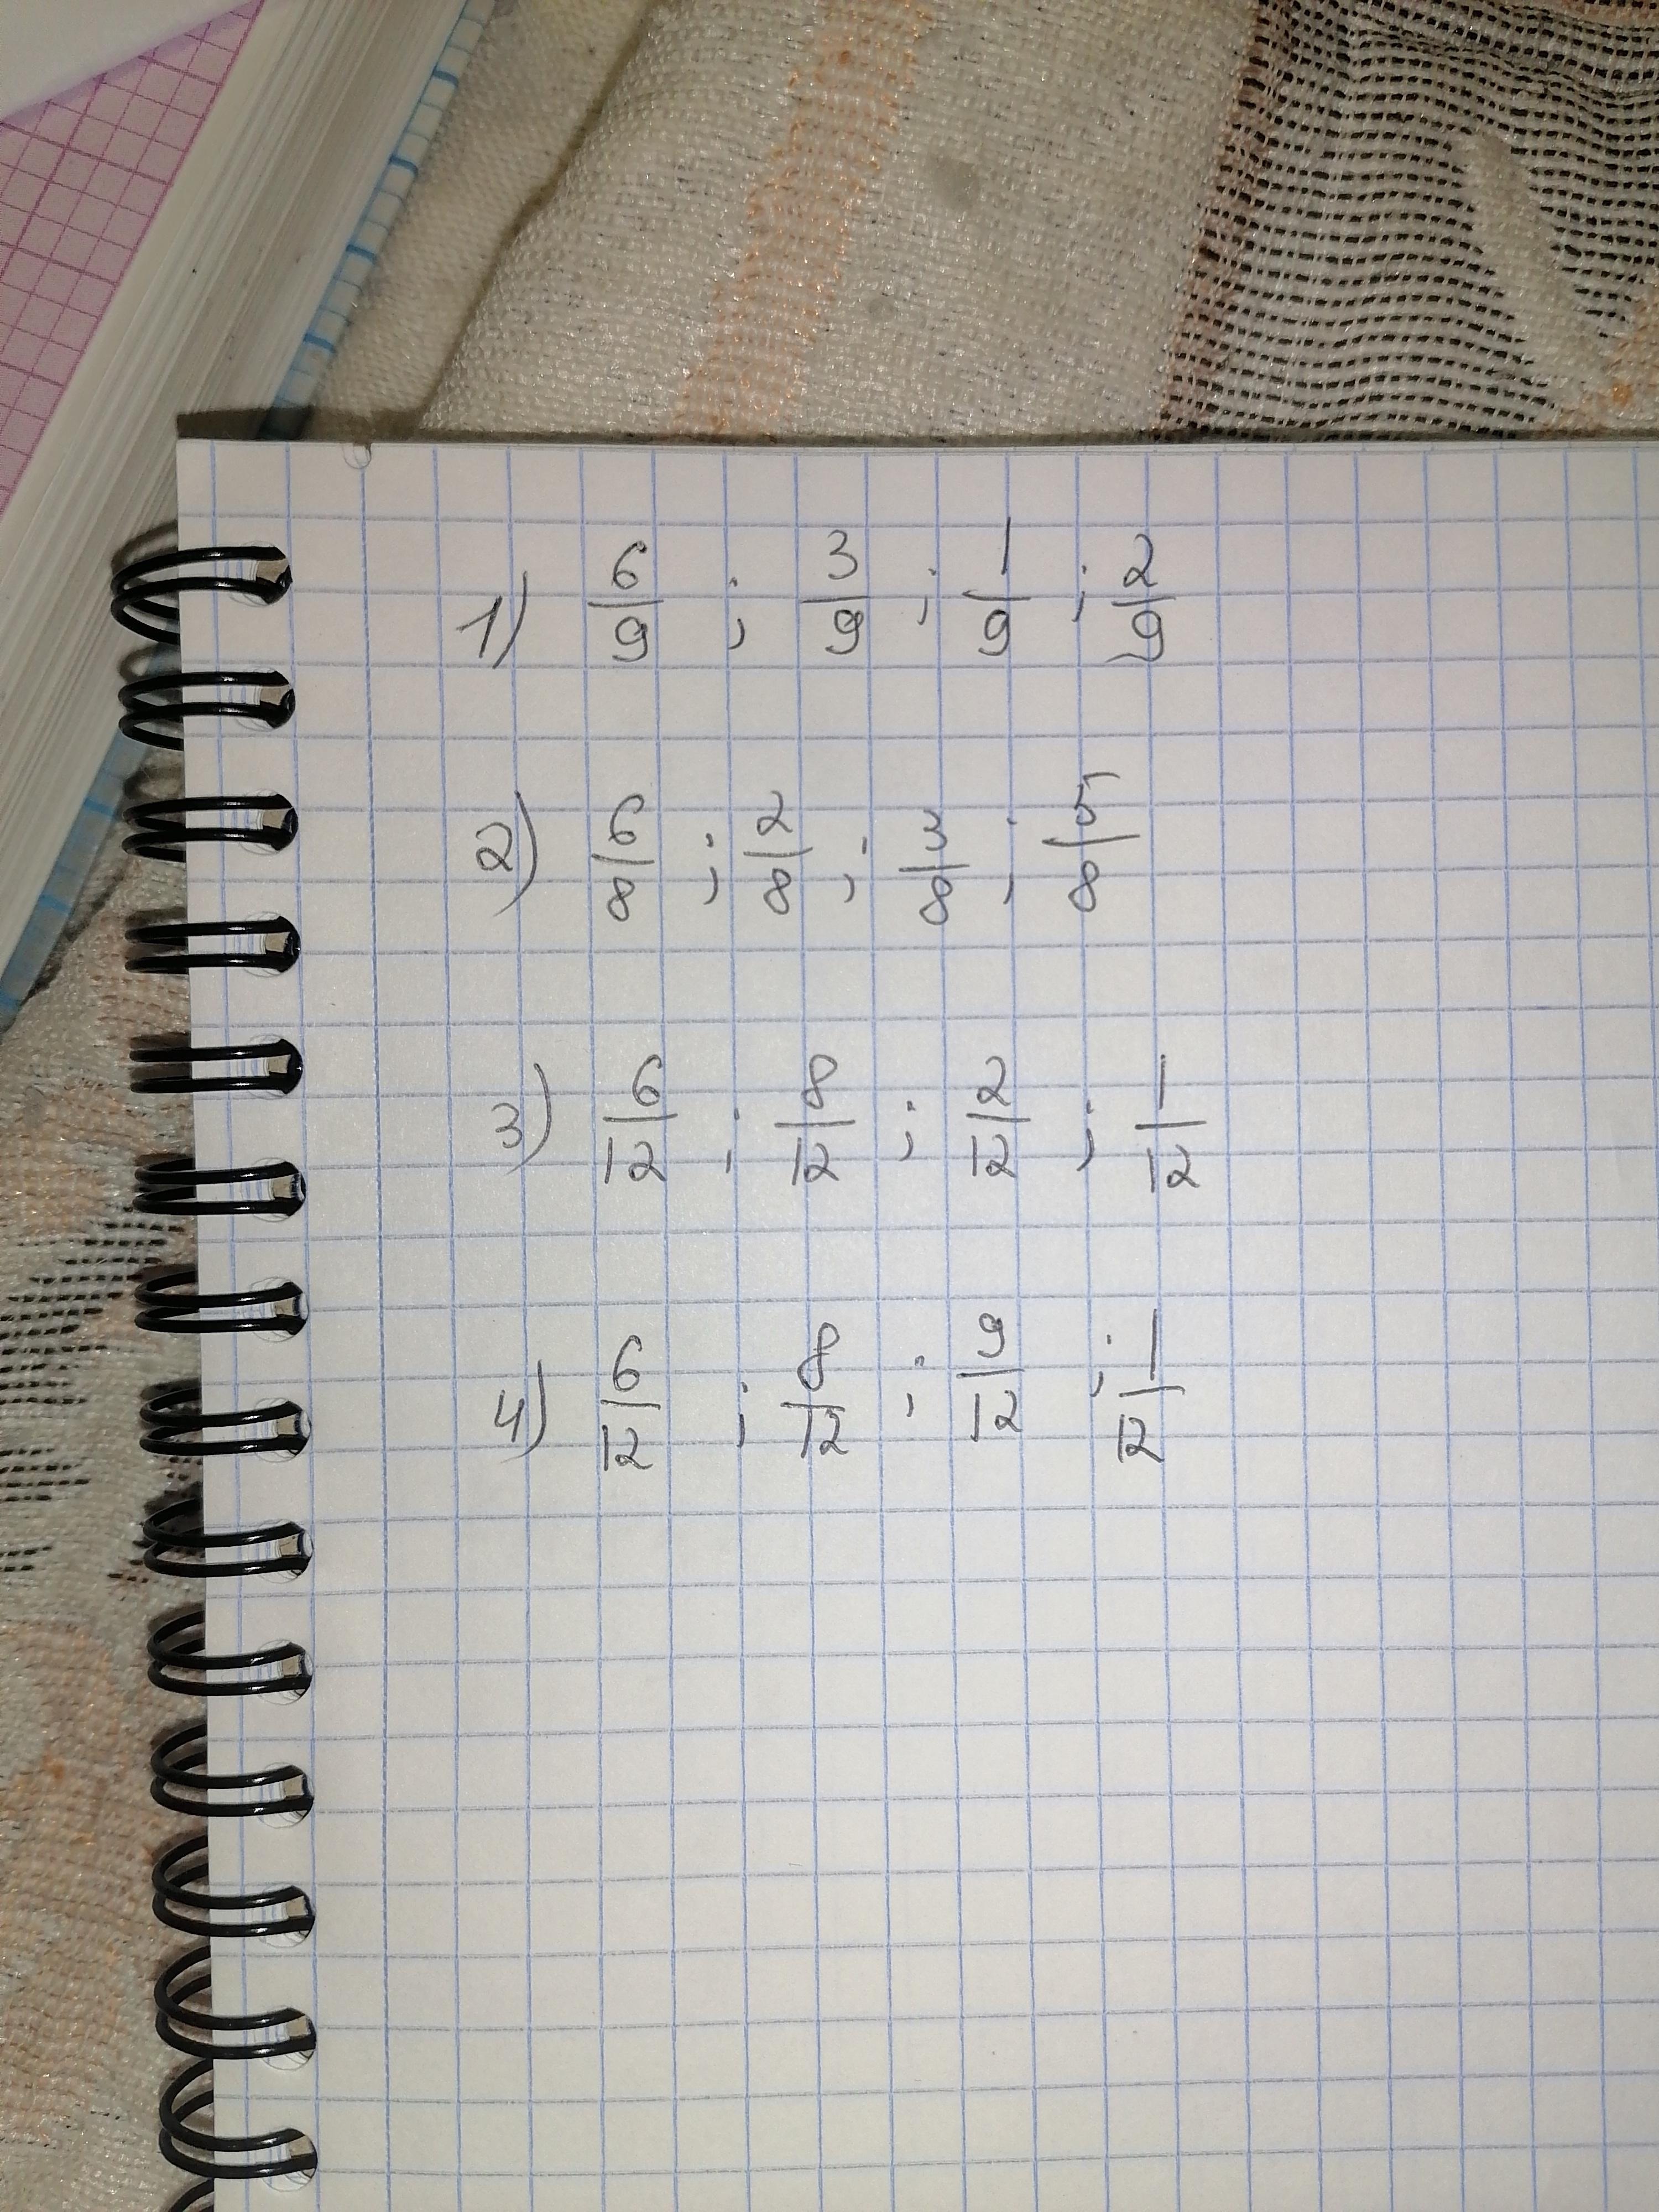 1) 6/9 ; 3/9 ; 1/9 ; 2/9
2) 6/8 ; 2/8 ; 3/8 ; 5/8
3) 6/12 ; 8/12 ; 2/12 ; 1/12
4) 6/12 ; 8/12 ; 9/12 ; 1/12